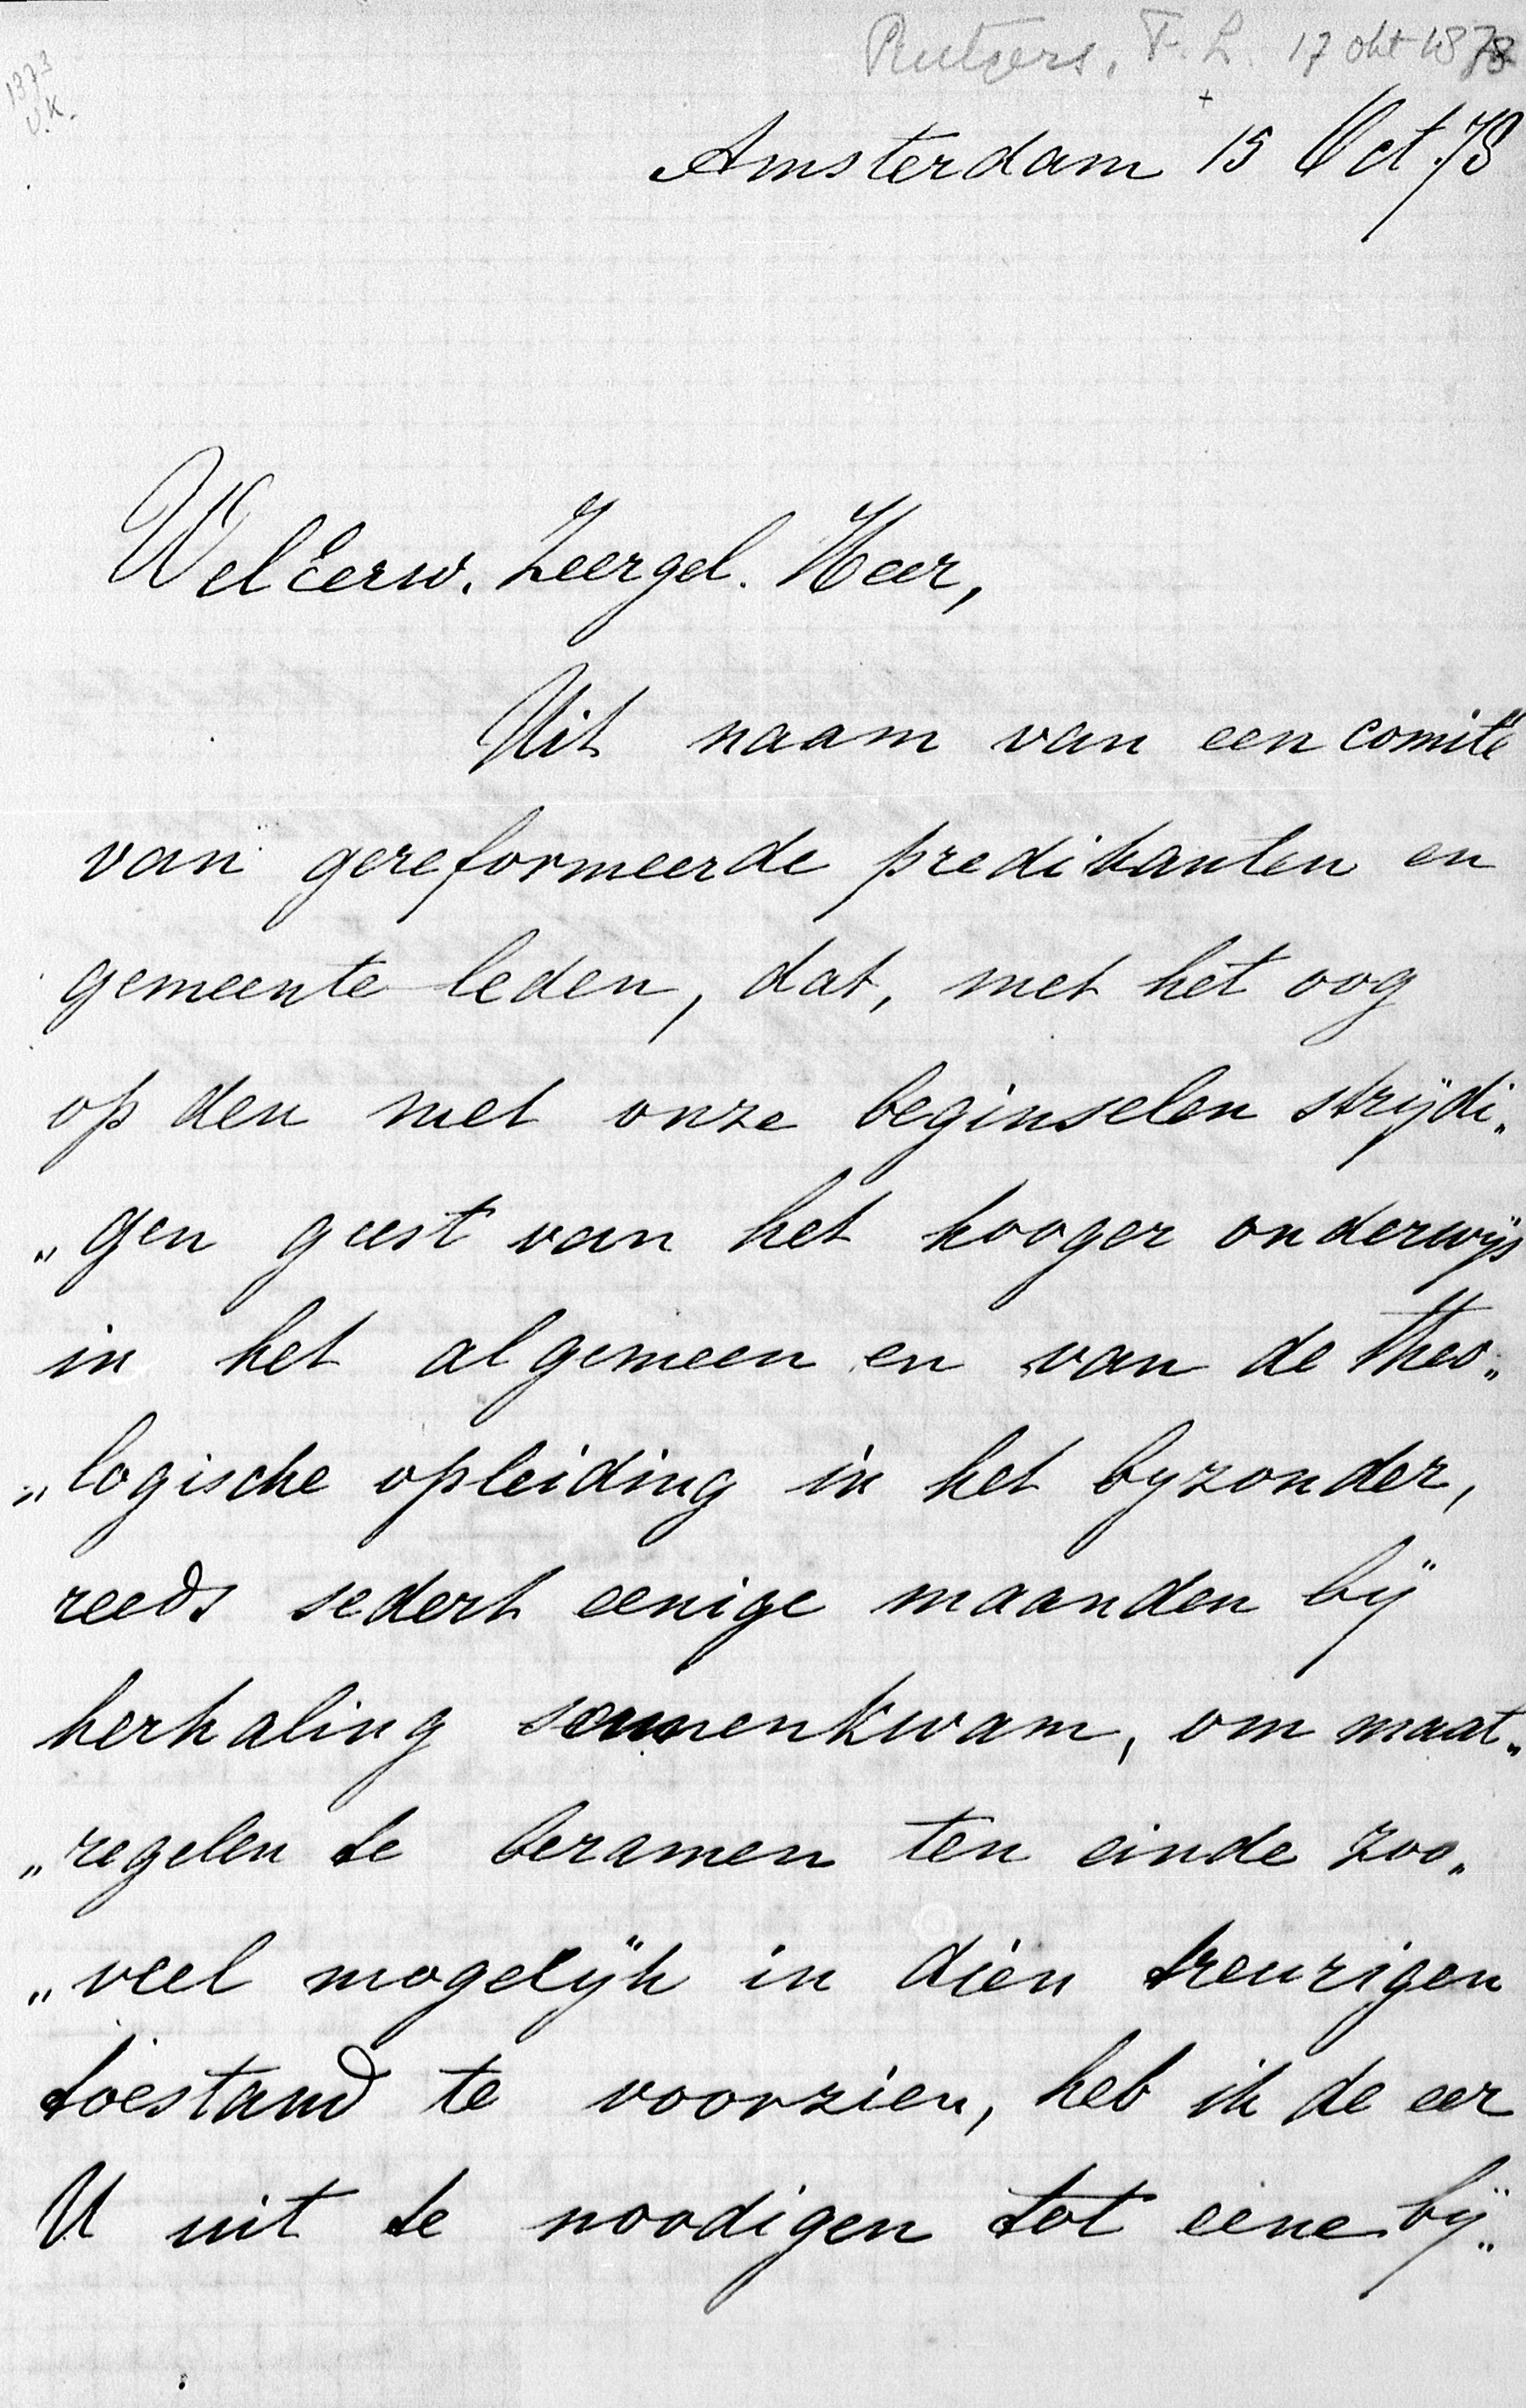 Rutgers, F. L. 17 okt 1878
1373
V.K.
Amsterdam 15 Oct 78
WelEerw. Zeergel. Heer,
Uit naam van een comité
van gereformeerde predikanten en
gemeente leden, dat, met het oog
op den met onze beginselen strijdi„
„gen geest van het hooger onderwijs
in het algemeen en van de theo„
„logische opleiding in het byzonder,
reeds sedert eenige maanden bij
herhaling samenkwam, om maat„
„regelen te beramen ten einde zoo„
„veel mogelijk in dien treurigen
toestand te voorzien, heb ik de eer
U uit te noodigen tot eene bij„